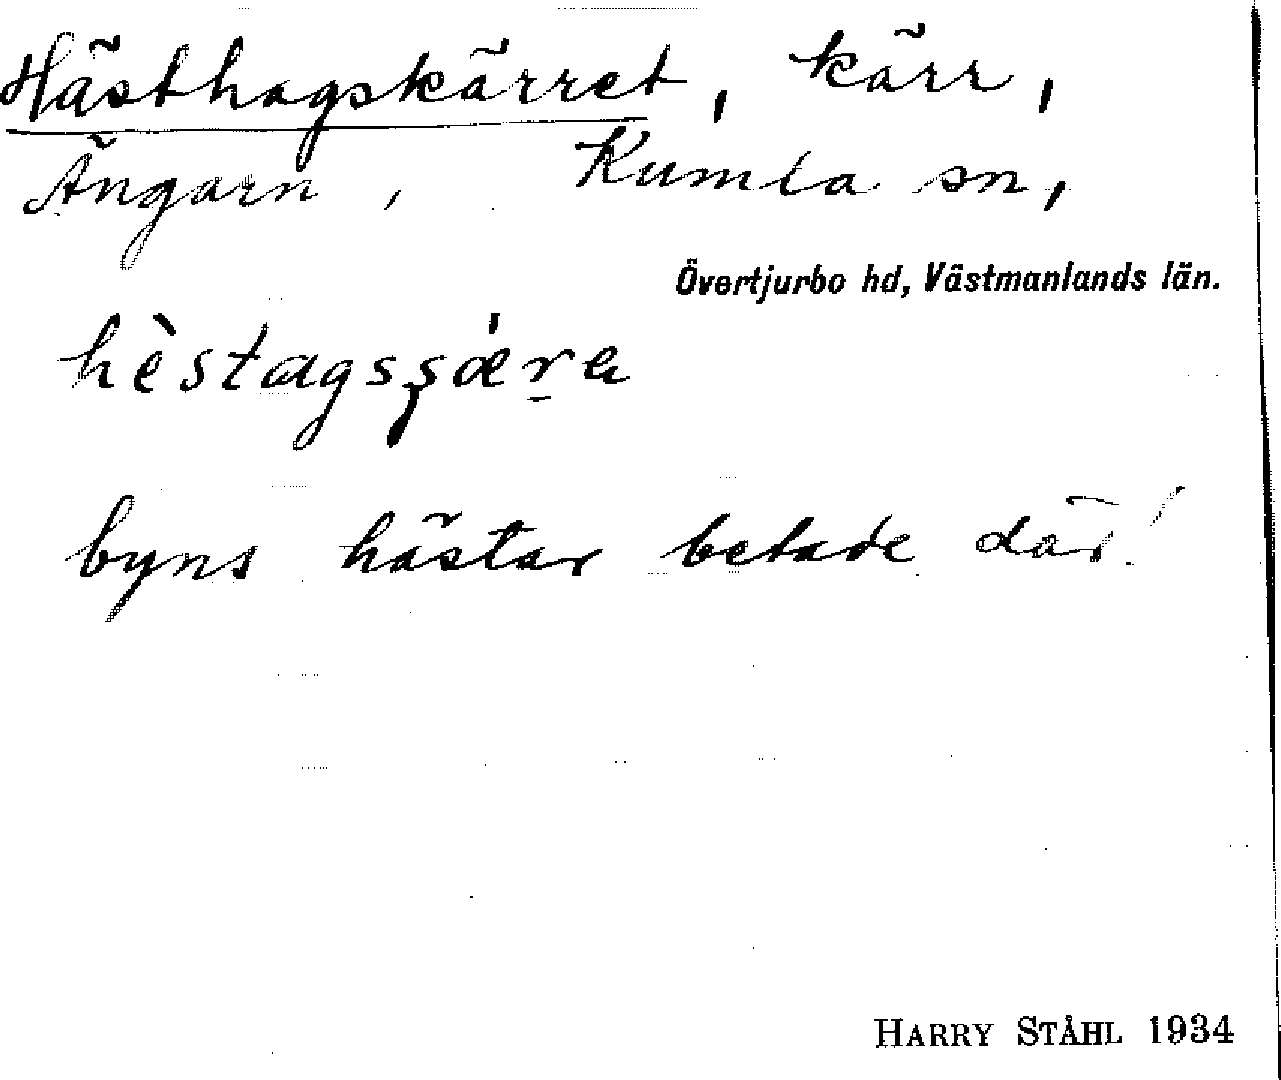 Hästhagskärret, kärr,
Ängarn, Kumla sn,
Övertjurbo hd, Västmanlands län.
byns hästar betade där!
HARRY STÅHL 1934